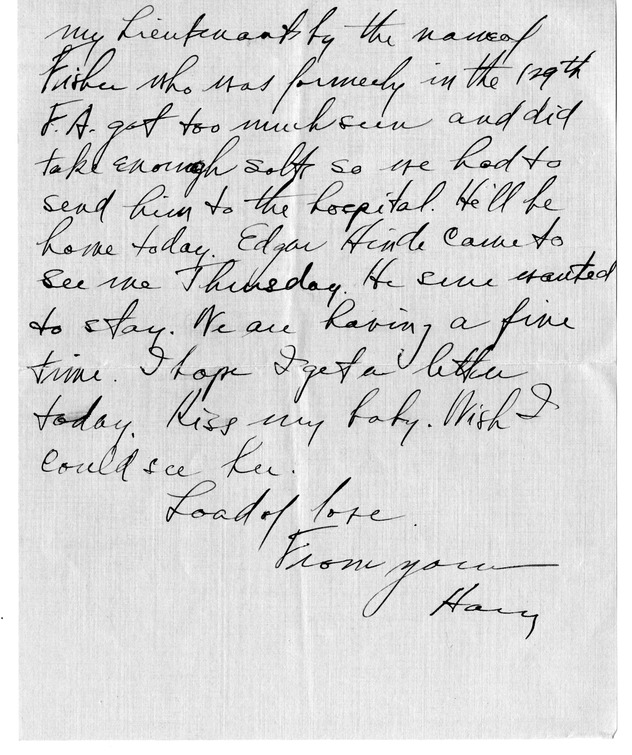 my Lieutenants by the name of
Fisher who was formerly in the 129th
F.A. got too much sun and did
take enough salt so we had to
send him to the hospital. He'll be
home today. Edgar Hinde came to
see me Thursday. He sure wanted
to stay. We are having a fine
time. I hope I get a letter
today. Kiss my baby. Wish I
could see her.
Load of love.
From your
Harry